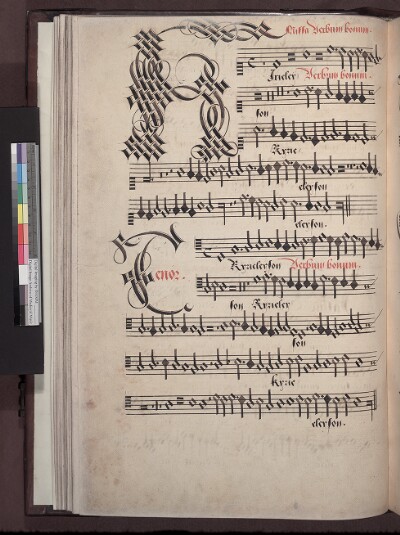 Missa Verbum bonum.
K Verbum bonum.
son
Kyrie
eleyson
eleyson.
Tenor.
Kyrieleyson Verbum bonum.
son Kyrieley
son
Kyrie
eleyson.